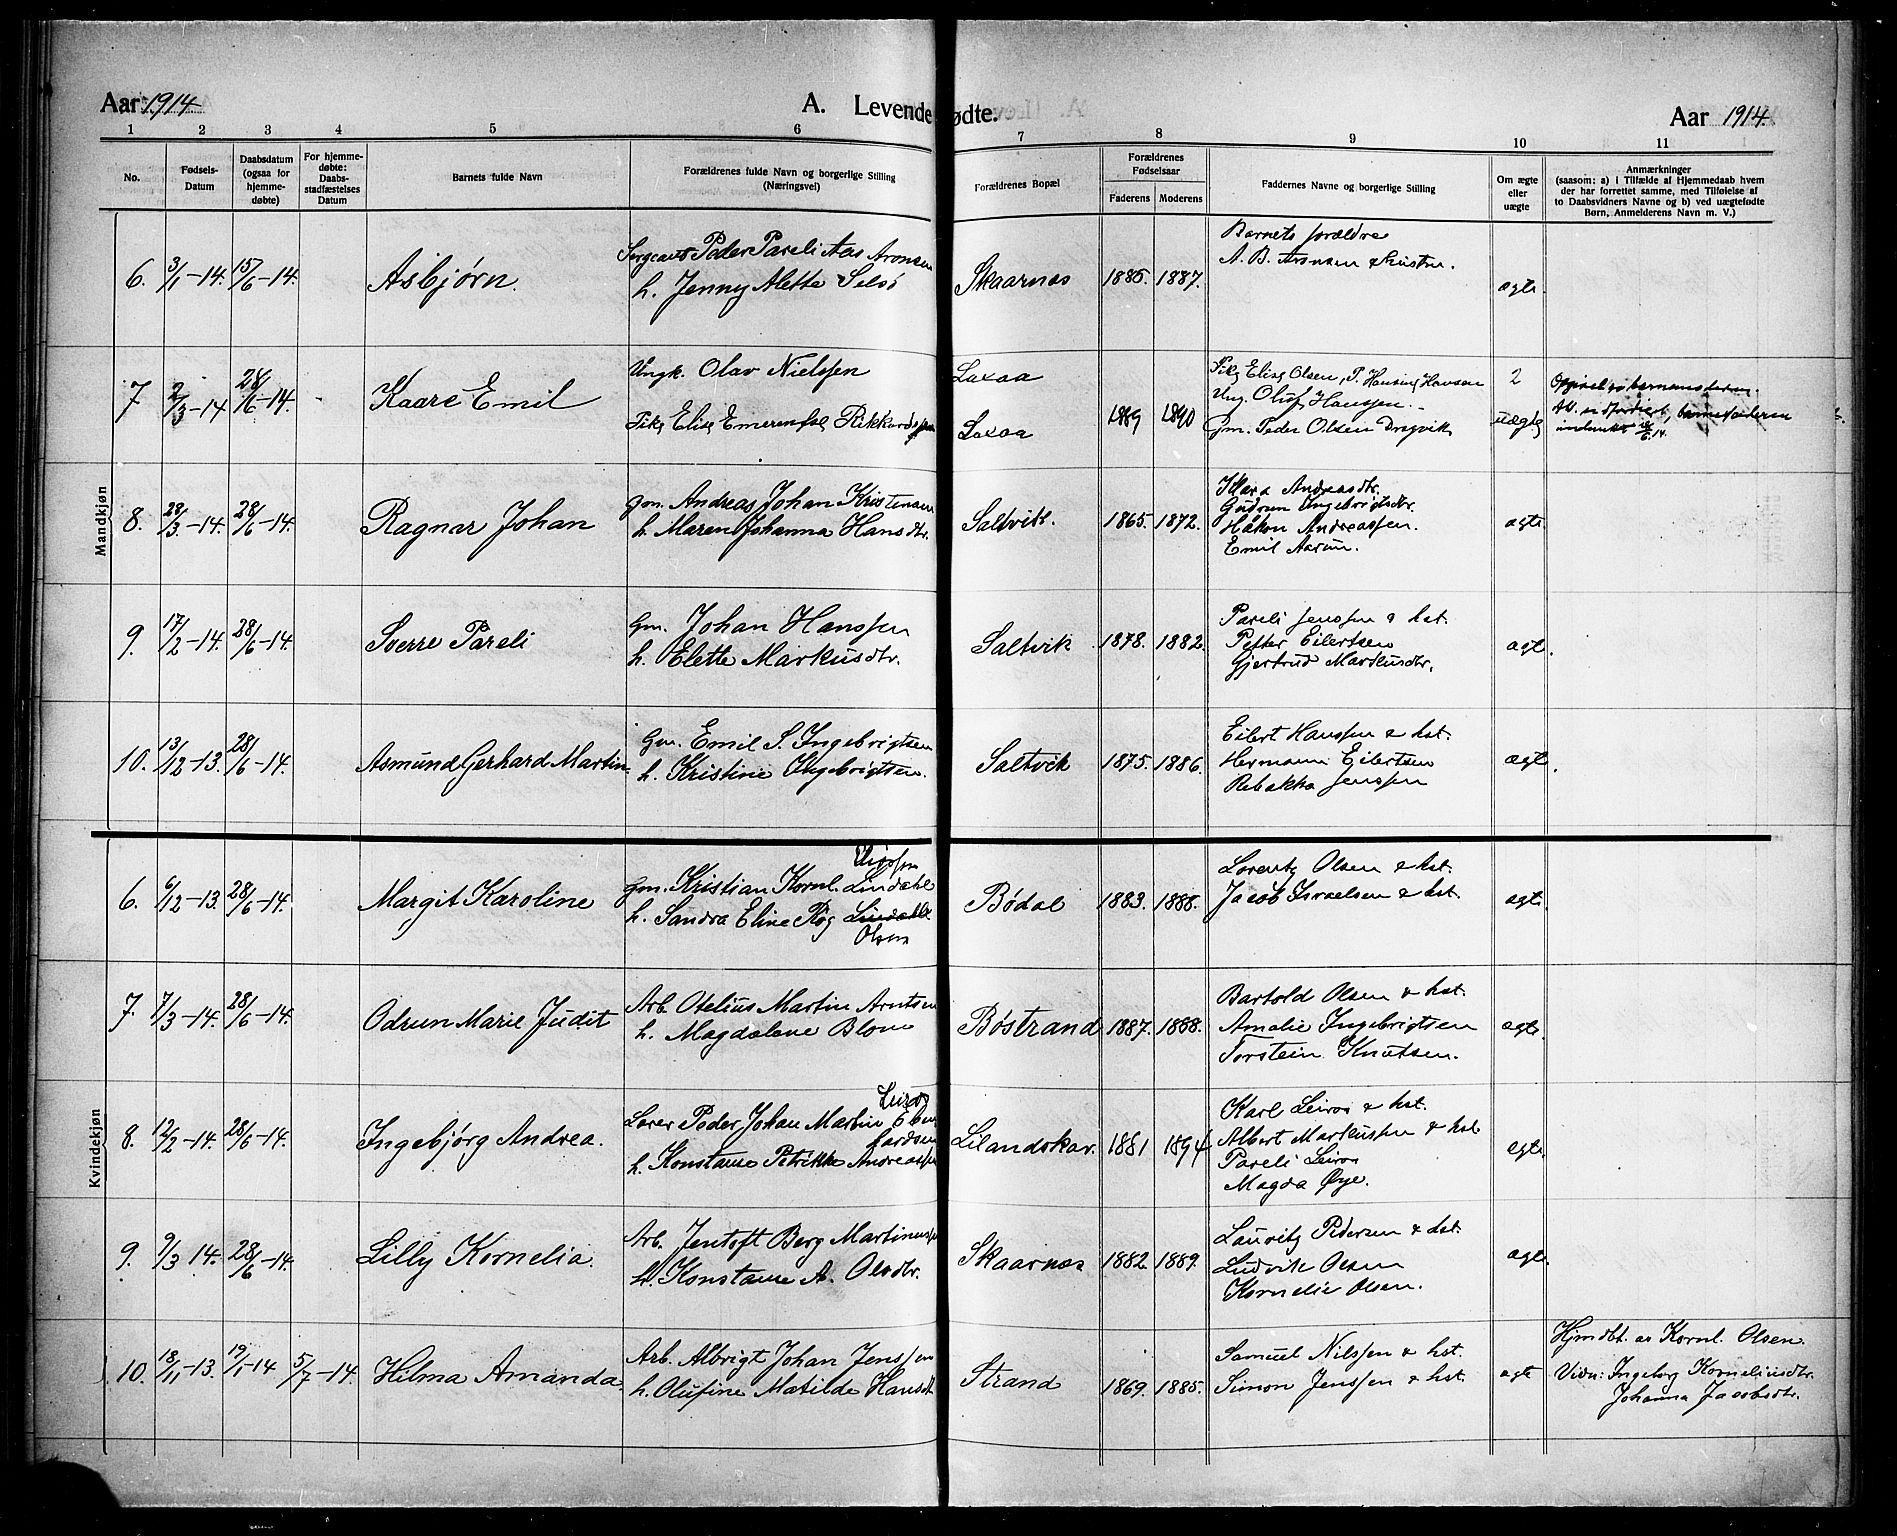 Aar 1914 A. Levendefødte. Aar 1914.
1 2 3 4 5 6 7 8 9 10 11
No.
Fødsels-
Datum
Daabsdatum
(ogsaa for
hjemme-
døbte)
For hjemme-
døbte:
Daabs-
stadfæstelses
Datum
Barnets fulde Navn
Forældrenes fulde Navn og borgerlige Stilling
(Næringsvei)
Forældrenes Bopæl
Forældrenes
Fødselsaar
Faderens Moderens
Faddernes Navne og borgerlig Stilling
Om ægte
eller
uægte
Anmærkninger
(saasom: a) i Tilfælde af Hjemmedaab hvem
der har forrettet samme, med Tilføielse af
to Daabsvidners Navne og b) ved uægtefødte
Børn, Anmelderens Navn m. V.)
Mandkjøn
6. 3/1-14. 15/6-14. Asbjørn.
Sergeant Peder Pareli Aas Aronsen
h. Jenny Alette Selsø
Skaarnes 1885. 1887.
Barnets forældre
A. B. Aronsen & hustru.
ægte.
7 2/3-14 28/6-14. Kaare Emil
Ungk. Olav Nielssen
Pike Elise Emerentse Rikkardssen
Laxaa
Laxaa
1889 1890
Pike Elise Olsen, P. Hansine Hansen
Ung. Oluf Hanssen.
Gm. Peder Olsen Dragvik
2
uægte
8. 28/3-14. 28/6-14. Ragnar Johan
Gm. Andreas Johan Kristensen
h. Maren Johanna Hansdtr.
Saltvik. 1865. 1872.
Klara Andreasdtr.
Gudrun Ingebrigtsdtr.
Håkon Andreassen
Emil Aarun.
ægte
9. 17/2-14. 28/6-14. Sverre Pareli
Gm. Johan Hanssen
h. Elette Markusdtr.
Saltvik 1878. 1882.
Pareli Jenssen & hst.
Petter Eilertsen
Gjertrud Markusdtr.
ægte.
10. 13/12-13. 28/6-14. Asmund Gerhard Martin
Gm. Emil S. Ingebrigtsen
h. Kristine Ingebrigtsen.
Saltvik 1875. 1886.
Eilert Hanssen & hst.
Hermann Eilertsen
Rebekka Jenssen
ægte.
Kvindekjøn
6. 6/12-13. 28/6-14. Margit Karoline
Eliassen
Gm. Kristian Kornl. Lindahl
h. Sandra Eline Rog Lindahl
Olsen
Bødal 1883. 1888.
Lorentz Olsen & hst.
Jacob Israelsen & hst.
ægte.
7. 7/3-14. 28/6-14. Odrun Marie Judit
Arb. Otelius Martin Arntsen
h. Magdalene Blom
Bøstrand 1887. 1888.
Bartold Olsen & hst.
Amalie Ingebrigtsen
Torstein Knutsen.
ægte.
8. 12/2-14. 28/6-14. Ingebjørg Andrea.
Leiros
Lærer Peder Johan Martin Eben
hardsen
h. Konstanse Petrikke Andreassen
Lilandskar. 1881 1894
Karl Leiros & hst.
Albert Markussen & hst
Pareli Leiros
Magda Øye.
ægte.
9. 9/3 14. 28/6-14. Lilly Kornelia.
Arb. Jentoft Berg Martinussen
h. Konstanse A. Olsdtr.
Skaarnes 1882. 1889.
Lauritz Pedersen & hst.
Ludvik Olsen
Kornelie Olsen.
ægte.
10. 18/11-13. 19/1-14 5/7-14. Hilma Amanda
Arb. Albrigt Johan Jenssen
h. Olufine Matilde Hansdt
Strand 1869. 1885.
Samuel Nilssen & hst.
Simon Jenssen & hst.
ægte
Hjmdbt. av Kornl. Olsen.
Vidn: Ingeborg Korneliusdtr.
Johanna Jacobsdtr.